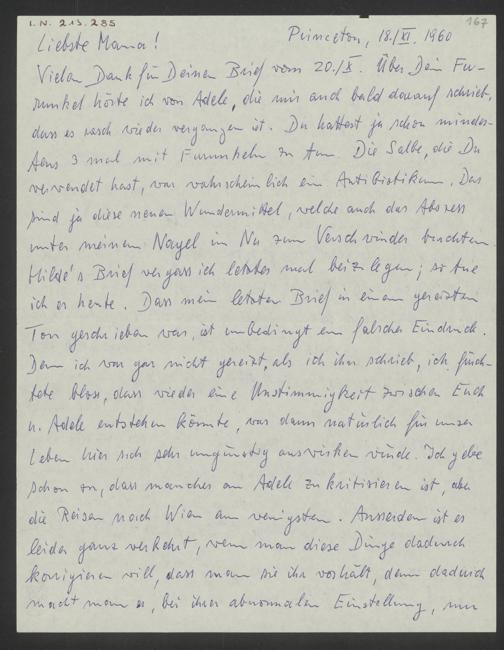 I.N. 213.285
167
Princeton, 18./XI. 1960
Liebste Mama!
Vielen Dank für Deinen Brief vom 20./X. Über Dein Fu-
runkel hörte ich von Adele, die mir auch bald darauf schrieb,
dass es rasch wieder vergangen ist. Du hattest ja schon minde-
stens 3 mal mit Furunkeln zu tun. Die Salbe, die Du
verwendet hast, war wahrscheinlich ein Antibiotikum. Das
sind ja diese neuen Wundermittel, welche auch das Abszess
unter meinem Nagel im Nu zum Verschwinden brachten.
Hilde's Brief vergass ich letztes mal beizulegen; so tue
ich es heute. Dass mein letzter Brief in einem gereizten
Ton geschrieben war, ist unbedingt ein falscher Eindruck.
Denn ich war gar nicht gereizt, als ich ihn schrieb, ich fürch-
tete bloss, dass wieder eine Unstimmigkeit zwischen Euch
u. Adele entstehen könnte, was dann natürlich für unser
Leben hier sich sehr ungünstig auswirken würde. Ich gebe
schon zu, dass manches an Adele zu kritisieren ist, aber
die Reisen nach Wien am wenigsten. Ausserdem ist es
leider ganz verkehrt, wenn man diese Dinge dadurch
korrigieren will, dass man sie ihr vorhält, denn dadurch
macht man es, bei ihrer abnormalen Einstellung, nur